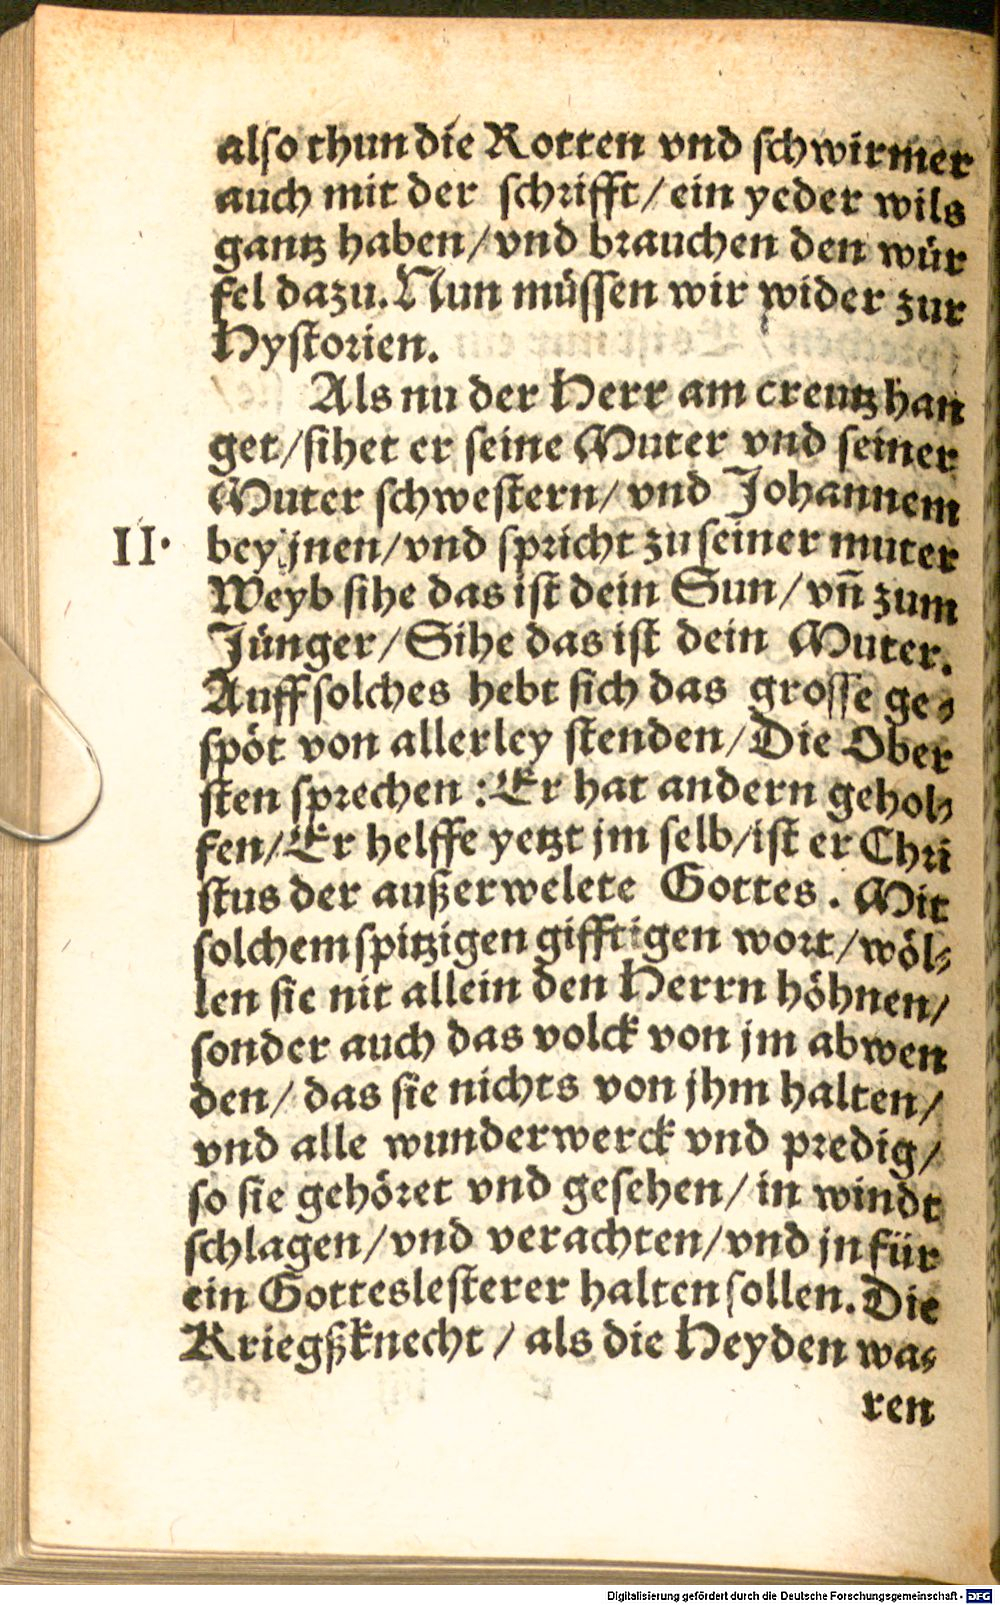 also thun die Rotten vnd schwirmer
auch mit der schrifft/ ein yeder wils
gantz haben/ vnd brauchen den wür
fel dazu. Nun müssen wir wider zur
Hystorien.
Als nu der Herr am creutz han
get/ sihet er seine Muter vnd seiner
Muter schwestern/ vnd Johannem
II. bey jnen/ vnd spricht zu seiner muter
Weyb sihe das ist dein Sun/ vn̄ zum
Jünger/ Sihe das ist dein Muter.
Auff solches hebt sich das grosse ge⸗
spöt von allerley stenden/ Die Ober
sten sprechen: Er hat andern gehol⸗
fen/ Er helffe yetzt jm selb/ ist er Chri
stus der außerwelete Gottes. Mit
solchem spitzigen gifftigen wort/ wöl⸗
len sie nit allein den Herrn höhnen/
sonder auch das volck von jm abwen
den/ das sie nichts von jhm halten/
vnd alle wunderwerck vnd predig/
so sie gehöret vnd gesehen/ in windt
schlagen/ vnd verachten/ vnd jn für
ein Gotteslesterer halten sollen. Die
Kriegßknecht/ als die Heyden wa⸗
ren
Digitalisierung gefördert durch die Deutsche Forschungsgemeinschaft - DFG